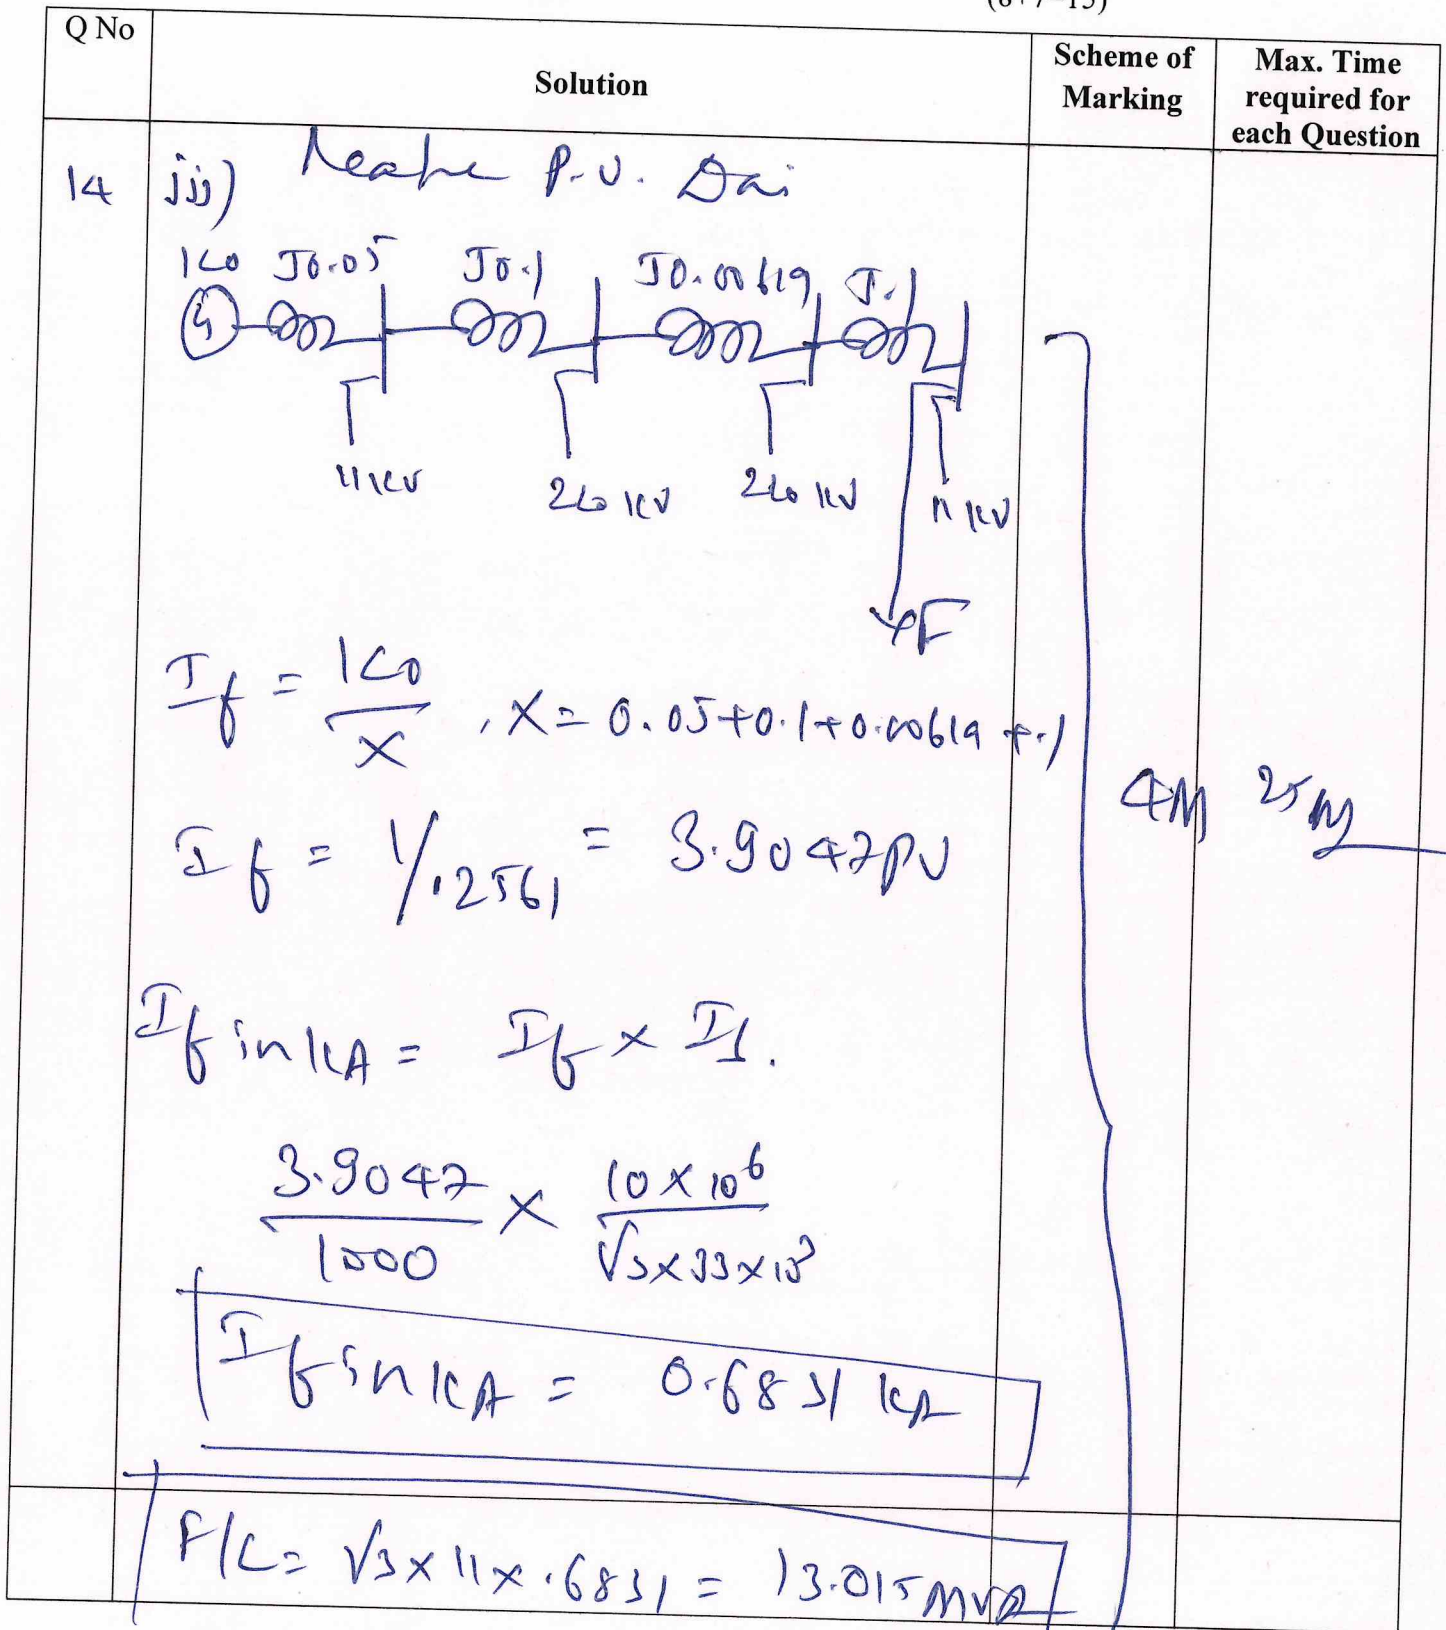 (8+7=15)
Q No
Solution
Scheme of
Marking
Max. Time
required for
each Question
14 iii) P.U. Dai
1∠0 J0.05 J0.1 J0.00619 J.1
G
11 kV 220 kV 220 kV 11 kV
F
If = 1∠0 / X , X = 0.05+0.1+0.00619+.1
If = 1/.2561 = 3.9047 PU
4M 25 M
If in kA = If ×
3.9047 / 1000 × 10×10^6 / √3×33×10^3
If in kA = 0.6831 kA
F/L = √3×11×.6831 = 13.015 MVA